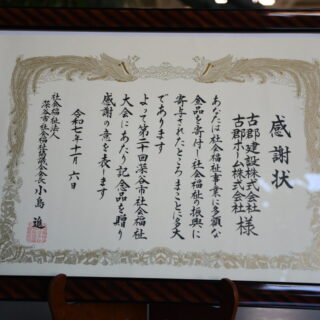 感謝状
古郡建設株式会社
古郡ホーム株式会社 様
あなたは社会福祉事業に多額な
金品を寄付し社会福祉の振興に
寄与されたところまことに多大
であります
よって第二十回深谷市社会福祉
大会にあたり記念品を贈り
感謝の意を表します
令和七年十一月六日
社会福祉法人
深谷市社会福祉協議会会長 小島 進